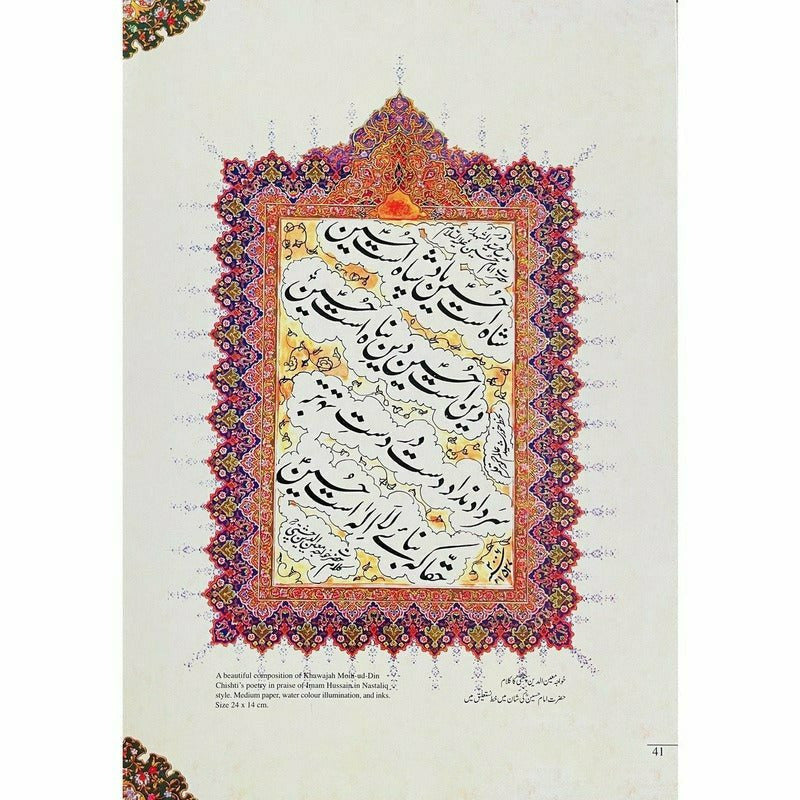 شاہ است حسینؑ بادشاہ است حسینؑ
دین است حسینؑ دین پناہ است حسینؑ
سر داد نداد دست در دست یزید
حقّا کہ بنائے لا الٰہ است حسینؑ
A beautiful composition of Khawajah Moin-ud-Din
Chishti's poetry in praise of Imam Hussain in Nastaliq
style. Medium paper, water colour illumination, and inks.
Size 24 x 14 cm.
خواجہ معین الدین چشتی کا کلام
حضرت امام حسینؑ کی شان میں خط نستعلیق میں
41